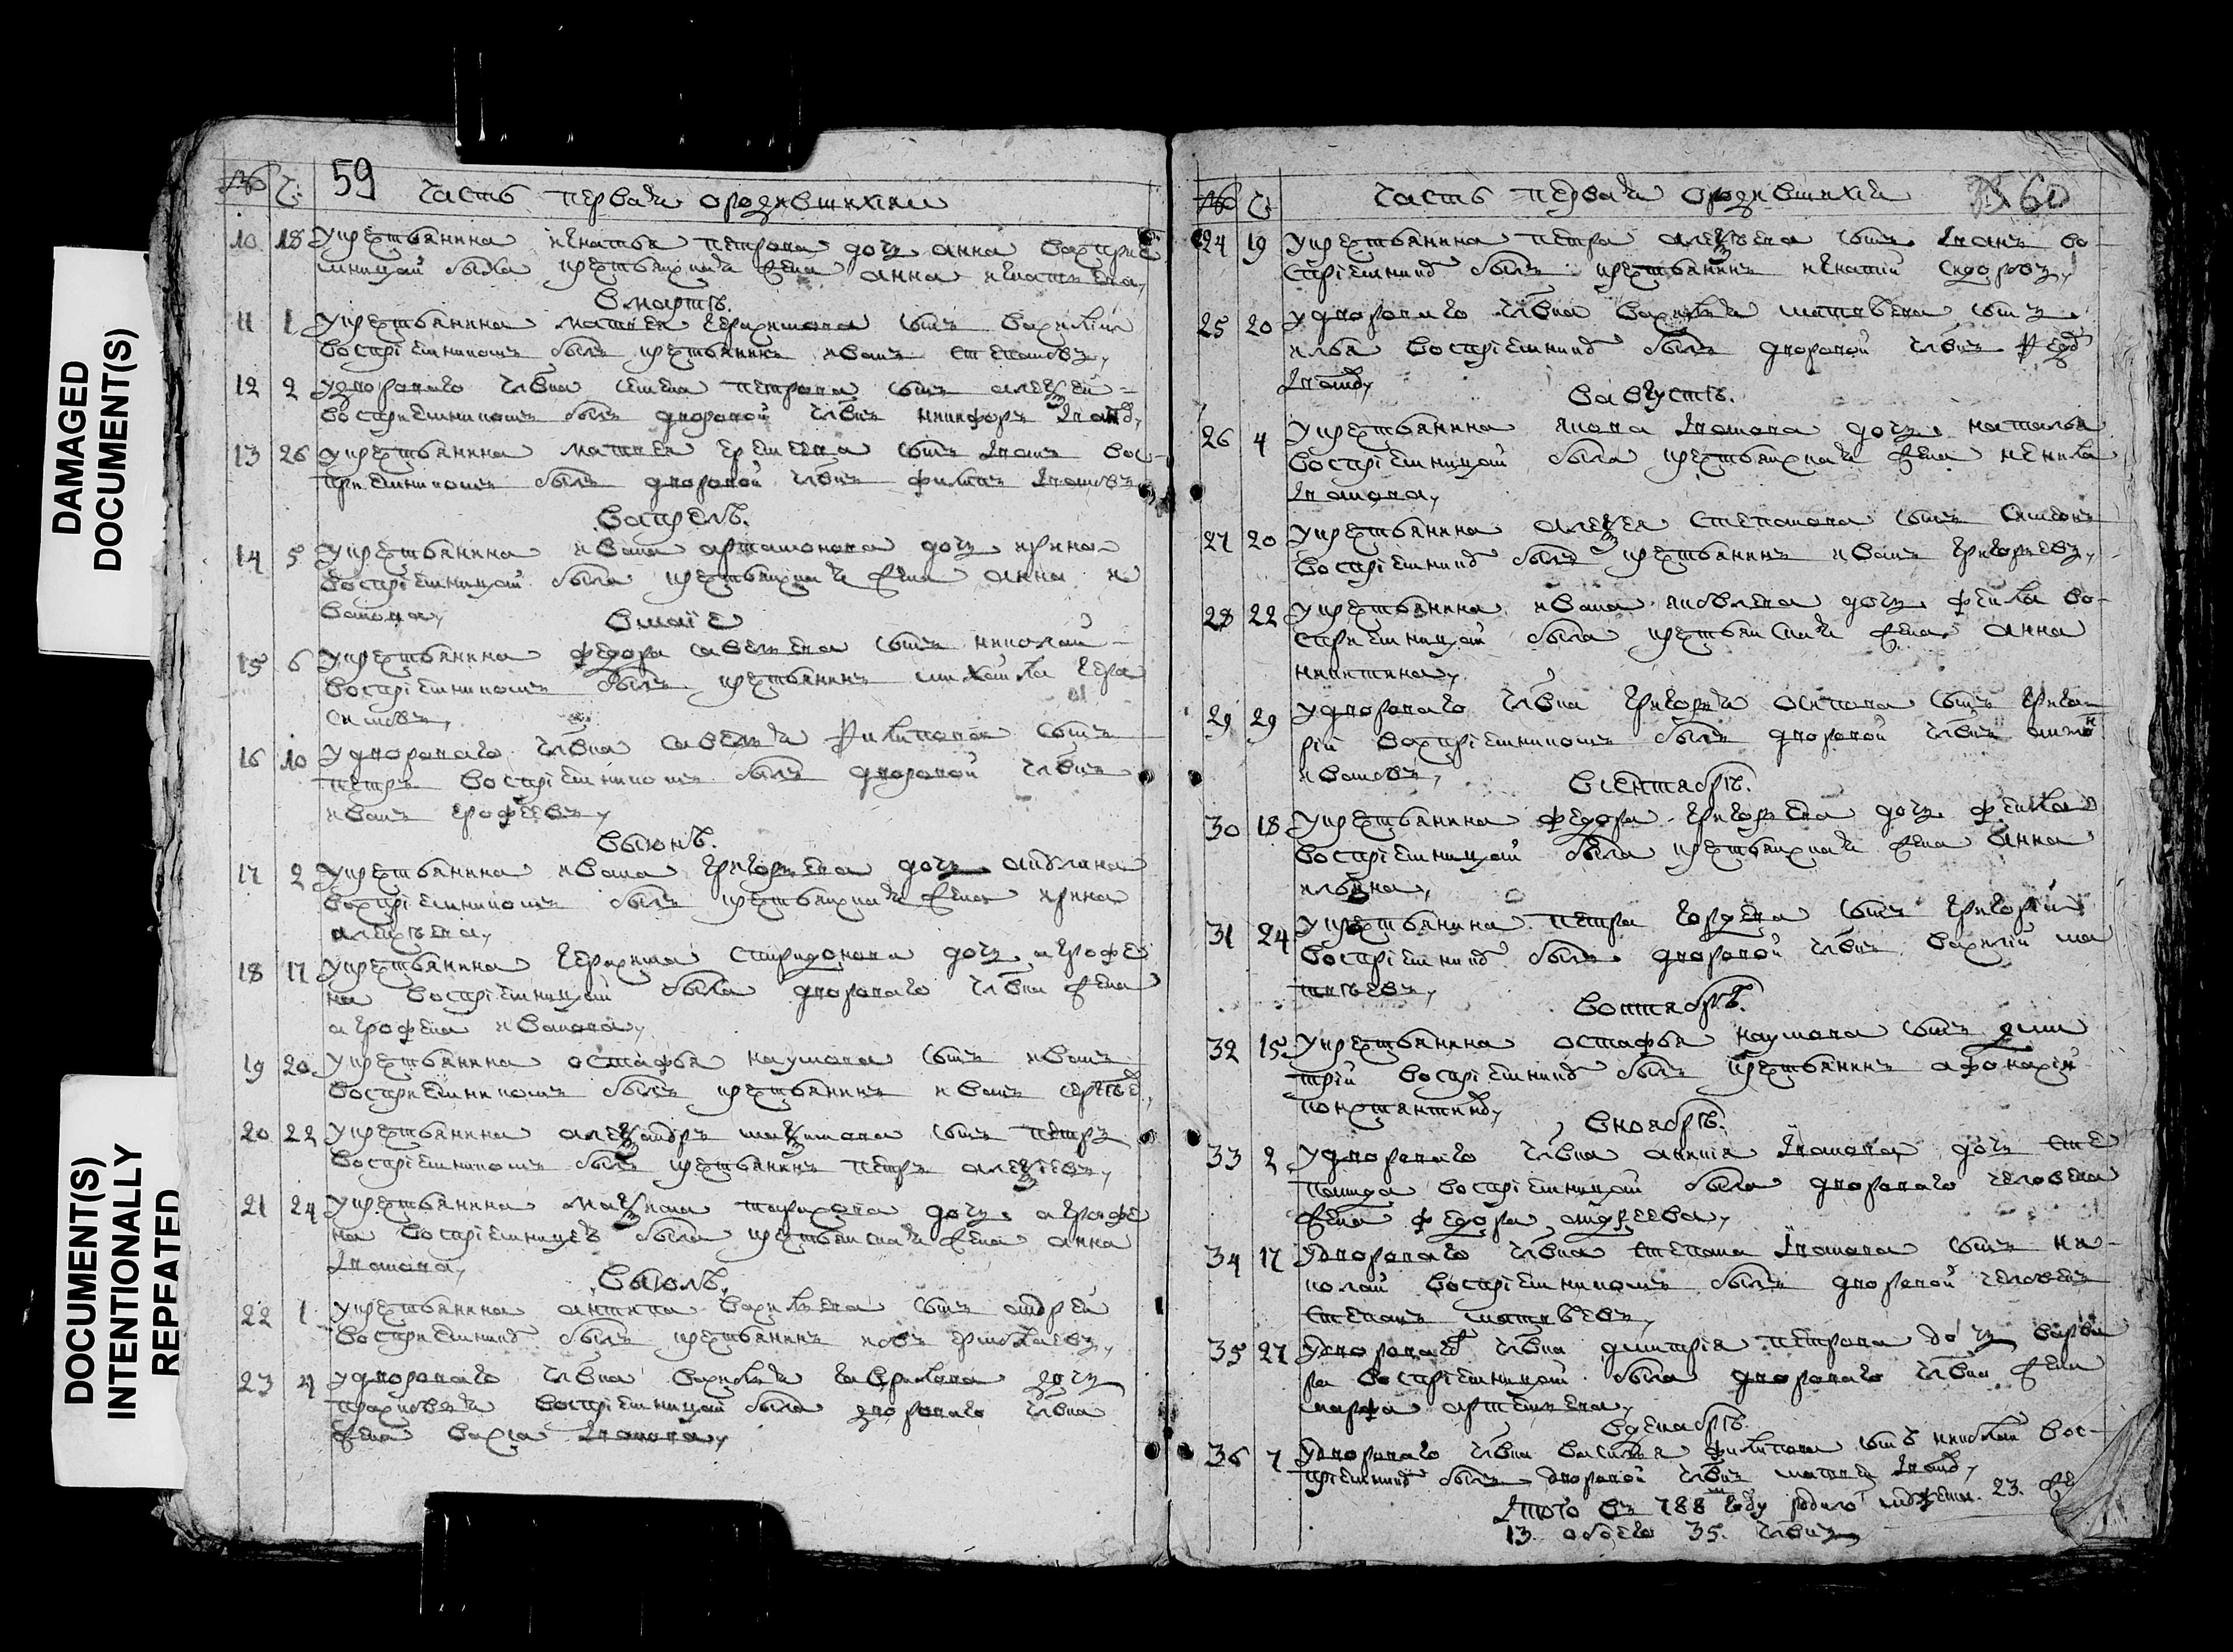 DAMAGED
DOCUMENT(S)
DOCUMENT(S)
INTENTIONALLY
REPEATED
№ Ч: 59 Часть первая о родившихся
10 18 У крестьянина игнатья петрова дочь анна восприе
мницой была крестьянская жена анна игнатьева,
В мартѣ.
11 1 У крестьянина матвея герасимова сынъ василий
восприемникомъ былъ крестьянинъ иванъ степановъ,
12 2 У двороваго члвка петрова сынъ алеѯей
восприемникомъ былъ дворовой члвкъ никифоръ
13 26 У крестьянина матвея еремеева сынъ вос-
приемникомъ былъ дворовой члвкъ филипъ
В апрелѣ.
14 5 У крестьянина ивана артамонова дочь ирина
восприемницой была крестьянская жена анна и
ванова,
В маїе
15 6 У крестьянина федора савельева сынъ николай
восприемникомъ былъ крестьянинъ михайла гера
симовъ,
16 10 У двороваго члвка савелья филипова сынъ
петръ восприемникомъ былъ дворовой члвкъ
иванъ ерофеевъ,
В июнѣ.
17 2 У крестьянина ивана григорьева дочь акулина
восприемникомъ былъ крестьянская жена ирина
алеѯѣева,
18 17 У крестьянина герасима спиридонова дочь агрофе
на восприемницой была двороваго члвка жена
агрофена иванова,
19 20 У крестьянина остафья наумова сынъ иванъ
восприемникомъ былъ крестьянинъ иванъ сергѣе,
20 22 У крестьянина алеѯандръ маѯимова сынъ петръ
восприемникомъ былъ крестьянинъ петръ алеѯѣевъ,
21 24 У крестьянина маѯима тарасова дочь агрофе
на восприемницей была крестьянская жена анна
В июлѣ.
22 1 У крестьянина антипа васильева сынъ андрей
восприемникъ былъ крестьянинъ
23 4 У двороваго члвка василья гаврилова дочь
прасковья восприемницой была двороваго члвка
жена
№ Ч: Часть первая о родившихся 60
24 19 У крестьянина петра алеѯѣева сынъ во-
сприемникъ былъ крестьянинъ игнатий сидоровъ,
25 20 У двороваго члвка василья матвѣева сынъ
илья восприемникъ былъ дворовой члвкъ
В августѣ.
26 4 У крестьянина якова дочь наталья
восприемницой была крестьянская жена ненила
27 20 У крестьянина алеѯея степанова сынъ симеонъ
восприемникъ былъ крестьянинъ иванъ григорьевъ,
28 22 У крестьянина ивана яковлева дочь фекла во-
сприемницой была крестьянская жена анна
никитина,
29 29 У двороваго члвка григорья осипова сынъ григо
рий восприемникомъ былъ дворовой члвкъ
ивановъ,
В сентябрѣ.
30 18 У крестьянина федора григорьева дочь фекла
восприемницой была крестьянская жена анна
ильина,
31 24 У крестьянина петра гордѣева сынъ григорий
восприемникъ былъ дворовой члвкъ василий ма
твѣевъ,
В октябрѣ.
32 15 У крестьянина остафья наумова сынъ дми
трий восприемникъ былъ крестьянинъ афонасий
В ноябрѣ.
33 2 У двороваго члвка дочь сте
панида восприемницой была двороваго человека
жена федора андреева,
34 17 У двороваго члвка степана сынъ ни-
колай восприемникомъ былъ дворовой человекъ
степанъ матвѣевъ,
35 27 У двороваго члвка дмитрия петрова дочь варва
ра восприемницой была двороваго члвка жена
марфа артемьева,
В декабрѣ.
36 7 У двороваго члвка василья филипова сынъ николай вос-
приемникъ былъ дворовой члвкъ матвей
Итого въ 788 году 23.
13 обоего 35. члвкъ